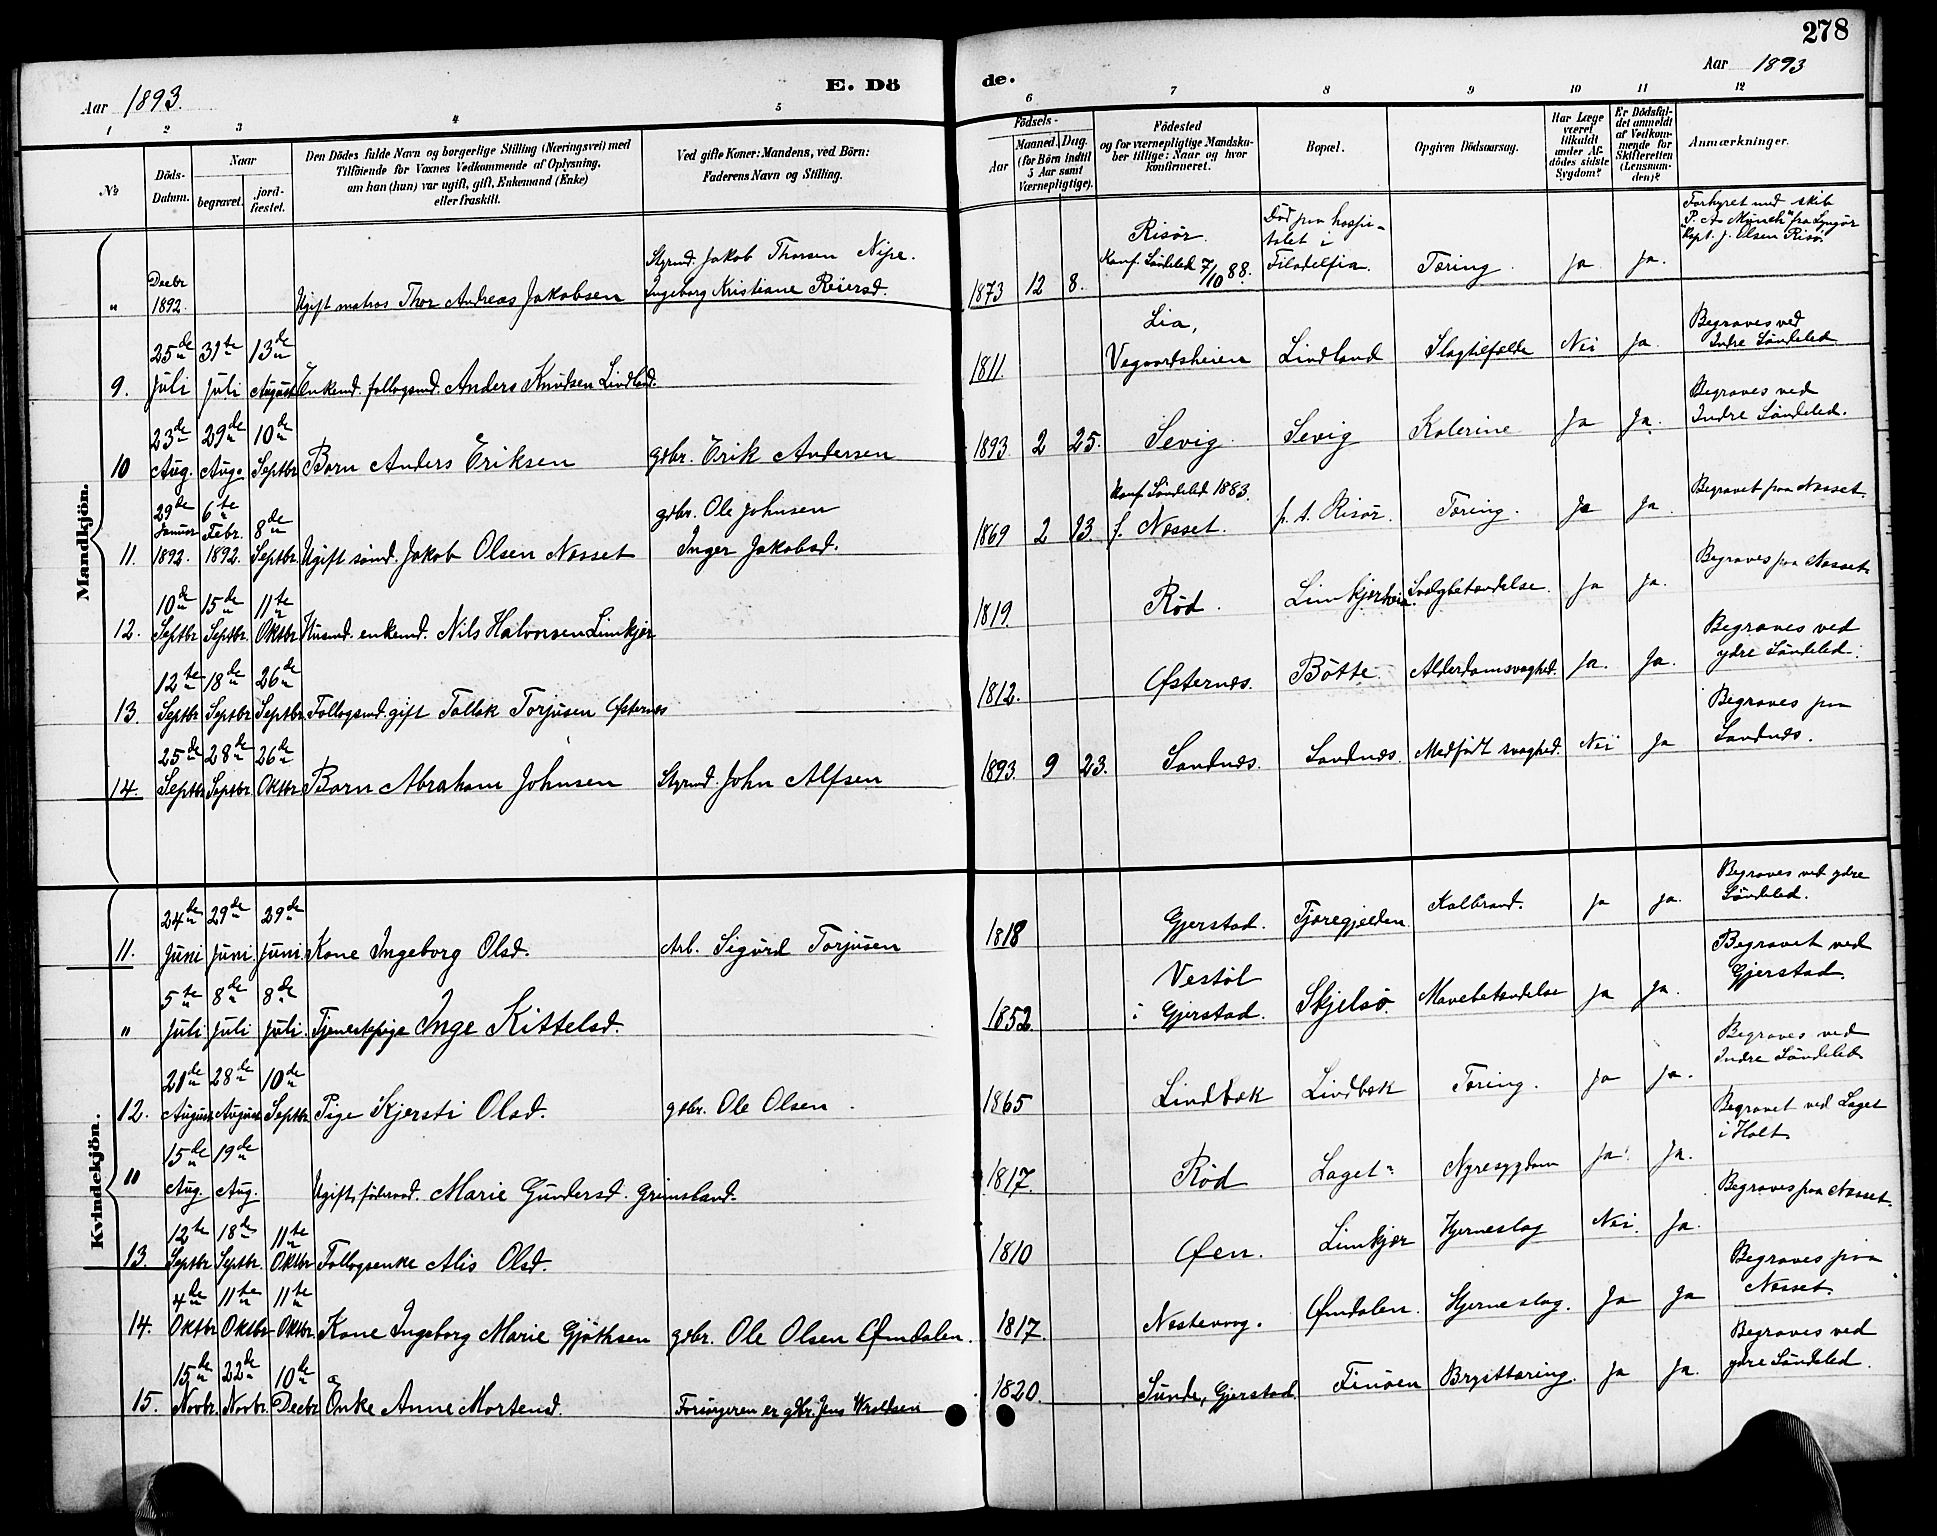 278
Aar 1893.
E. Dö
de.
Aar 1893
1 2 3 4 5 6 7 8 9 10 11 12
№
Döds-
Datum.
Naar
begravet.
jord-
fæstet.
Den Dödes fulde Navn og borgerlige Stilling (Næringsvei) med
Tilföiende for Voxnes Vedkommende af Oplysning,
om han (hun) var ugift, gift, Enkemand (Enke)
eller fraskilt.
Ved gifte Koner: Mandens, ved Börn:
Faderens Navn og Stilling.
Födsels-
Aar
Maaned.
Dag.
(for Börn indtil
5 Aar samt
Værnepligtige).
Födested
og for værnepligtige Mandska-
ber tillige: Naar og hvor
konfirmeret.
Bopæl.
Opgiven Dödsaarsag.
Har Læge
været
tilkaldt
under Af-
dödes sidste
Sygdom?
Er Dödsfal-
det anmeldt
af Vedkom-
mende for
Skifteretten
(Lensman-
den)?
Anmærkninger.
Mandkjön.
" Decbr 1892. Ugift matros Thor Andreas Jakobsen
Styrmd. Jakob Thorsen Nipe.
Ingeborg Kristiane Reiersd.
1873 12 8. Risør.
Konf. Söndeled 7/10 88.
Död paa hospi-
talet i
Filadelfia.
Tæring. ja ja.
Forhyret med skib
"P. A. Munch" fra Lyngør
Kapt. J. Olsen Risør
25de 31te 13de
9. Juli Juli August Enkemd. follogsmd. Anders Knudsen Lindland.
1811 Lia,
Vegaardsheien Lindland Slagtilfælde Nei Ja.
Begraves ved
Indre Söndeled
23de 29de 10de
10 Aug. Aug. Septbr Barn Anders Eriksen gdbr. Erik Andersen
1893 2 25. Sevig. Sevig Kolerine Ja Ja.
Begraves ved
Indre Söndeled.
29de 6te
Januar Febr. 8de
11. 1892. 1892. Septbr. Ugift sömd. Jakob Olsen Næsset
gdbr. Ole Johnsen
Inger Jakobsd.
1869 2 23. Konf. Söndeled 1883.
f. Næsset. p. t. Risør. Tæring. Ja Ja.
Begravet paa Næsset.
10de 15de 11te
12. Septbr Septbr. Oktbr Husmd. enkemd. Nils Halvorsen Limkjær
1819. Röd. Limkjærheia Svælgbetændelse. Ja Ja.
Begraves paa Næsset
12te 18de 26de
13. Septbr Septbr Septbr Follogsmd. gift Tallak Torjusen Østernes
1812. Østernes. Bötte. Alderdomsvaghed. Ja. Ja.
Begraves ved
ydre Söndeled.
25de 28de 26de
14. Septbr Septbr Oktbr Barn Abraham Johnsen Styrmd. John Alfsen
1893. 9 23. Sandnæs. Sandnæs. Medfödt svaghed. Nei Ja
Begraves paa
Sandnæs.
Kvindekjön.
24de 29de 29de
11. Juni Juni. Juni. Kone Ingeborg Olsd. Arb. Sigurd Torjusen
1818 Gjerstad. Tjæregjelden Kolbrand. Ja ja.
Begraves ved ydre
Söndeled.
5te 8de 8de
" Juli Juli Juli. Tjenestepige Inge Kittelsd.
1852. Vestöl
i Gjerstad. Skjelsö. Mavebetændelse ja Ja.
Begravet ved
Gjerstad.
21de 28de 10de
12. August August Septbr Pige Kjersti Olsd. gdbr. Ole Olsen.
1865 Lindbæk Lindbæk Tæring. Ja Ja.
Begraves ved
Indre Söndeled
15de 19de
" Aug. Aug. Ugift, föderaad. Marie Gundersd. Grimsland.
1817. Röd Laget Nyresygdom Ja. Ja.
Begravet ved Laget
i Holt
12te 18de 11te
13. Septbr Septbr. Oktbr Follogsenke Alis Olsd.
1810 Øen. Limkjær Hjerneslag Nei. Ja.
Begraves paa Næsset.
4de 11te 11te
14. Oktbr Oktbr Oktbr. Kone Ingeborg Marie Gjöthsen gdbr. Ole Olsen Ømdalen.
1817. Næstevaag. Ømdalen. Hjerneslag. Ja Ja
Begraves paa
Næsset.
15de 22de 10de
15. Novbr. Novbr. Decbr Enke Anne Mortensd. Forsörgeren er gdbr. Jens
1820. Sunde, Gjerstad Finöen Brysttæring. Ja Ja.
Begraves ved
ydre Söndeled.